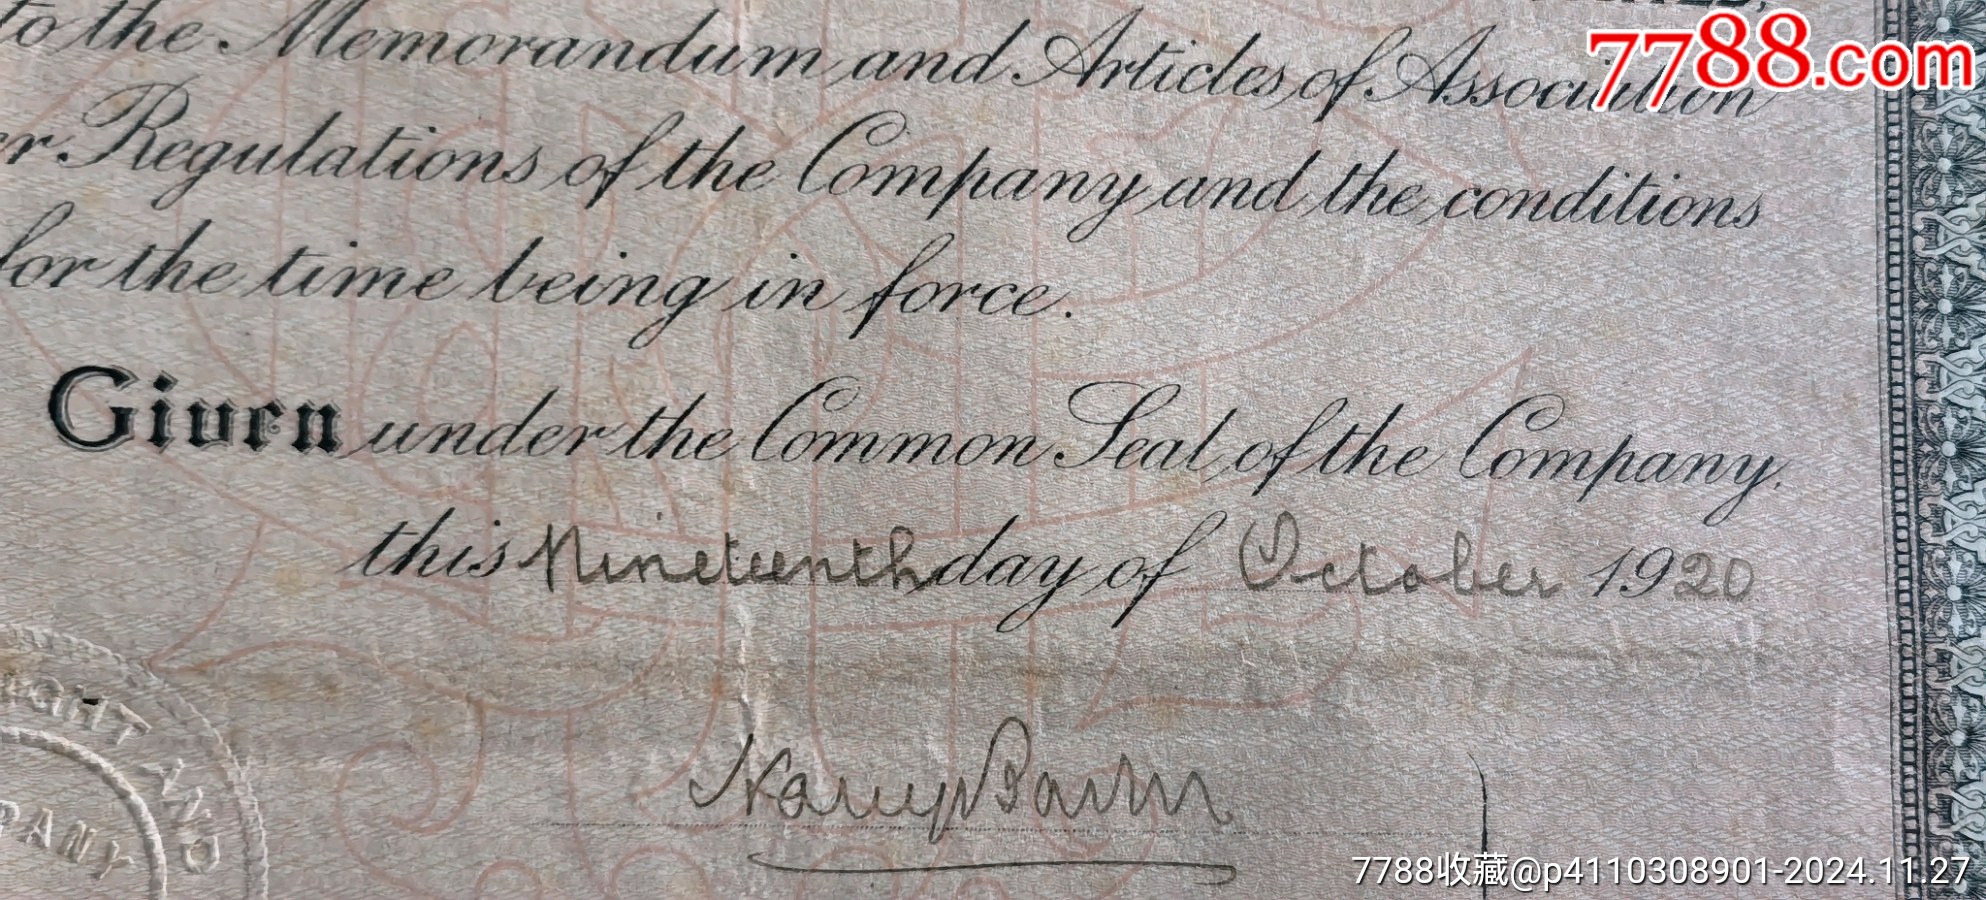 7788.com
to the Memorandum and Articles of Association
Regulations of the Company and the conditions
for the time being in force.
Given under the Common Seal of the Company,
this Nineteenth day of October 1920
Harry
7788收藏@p4110308901-2024.11.27